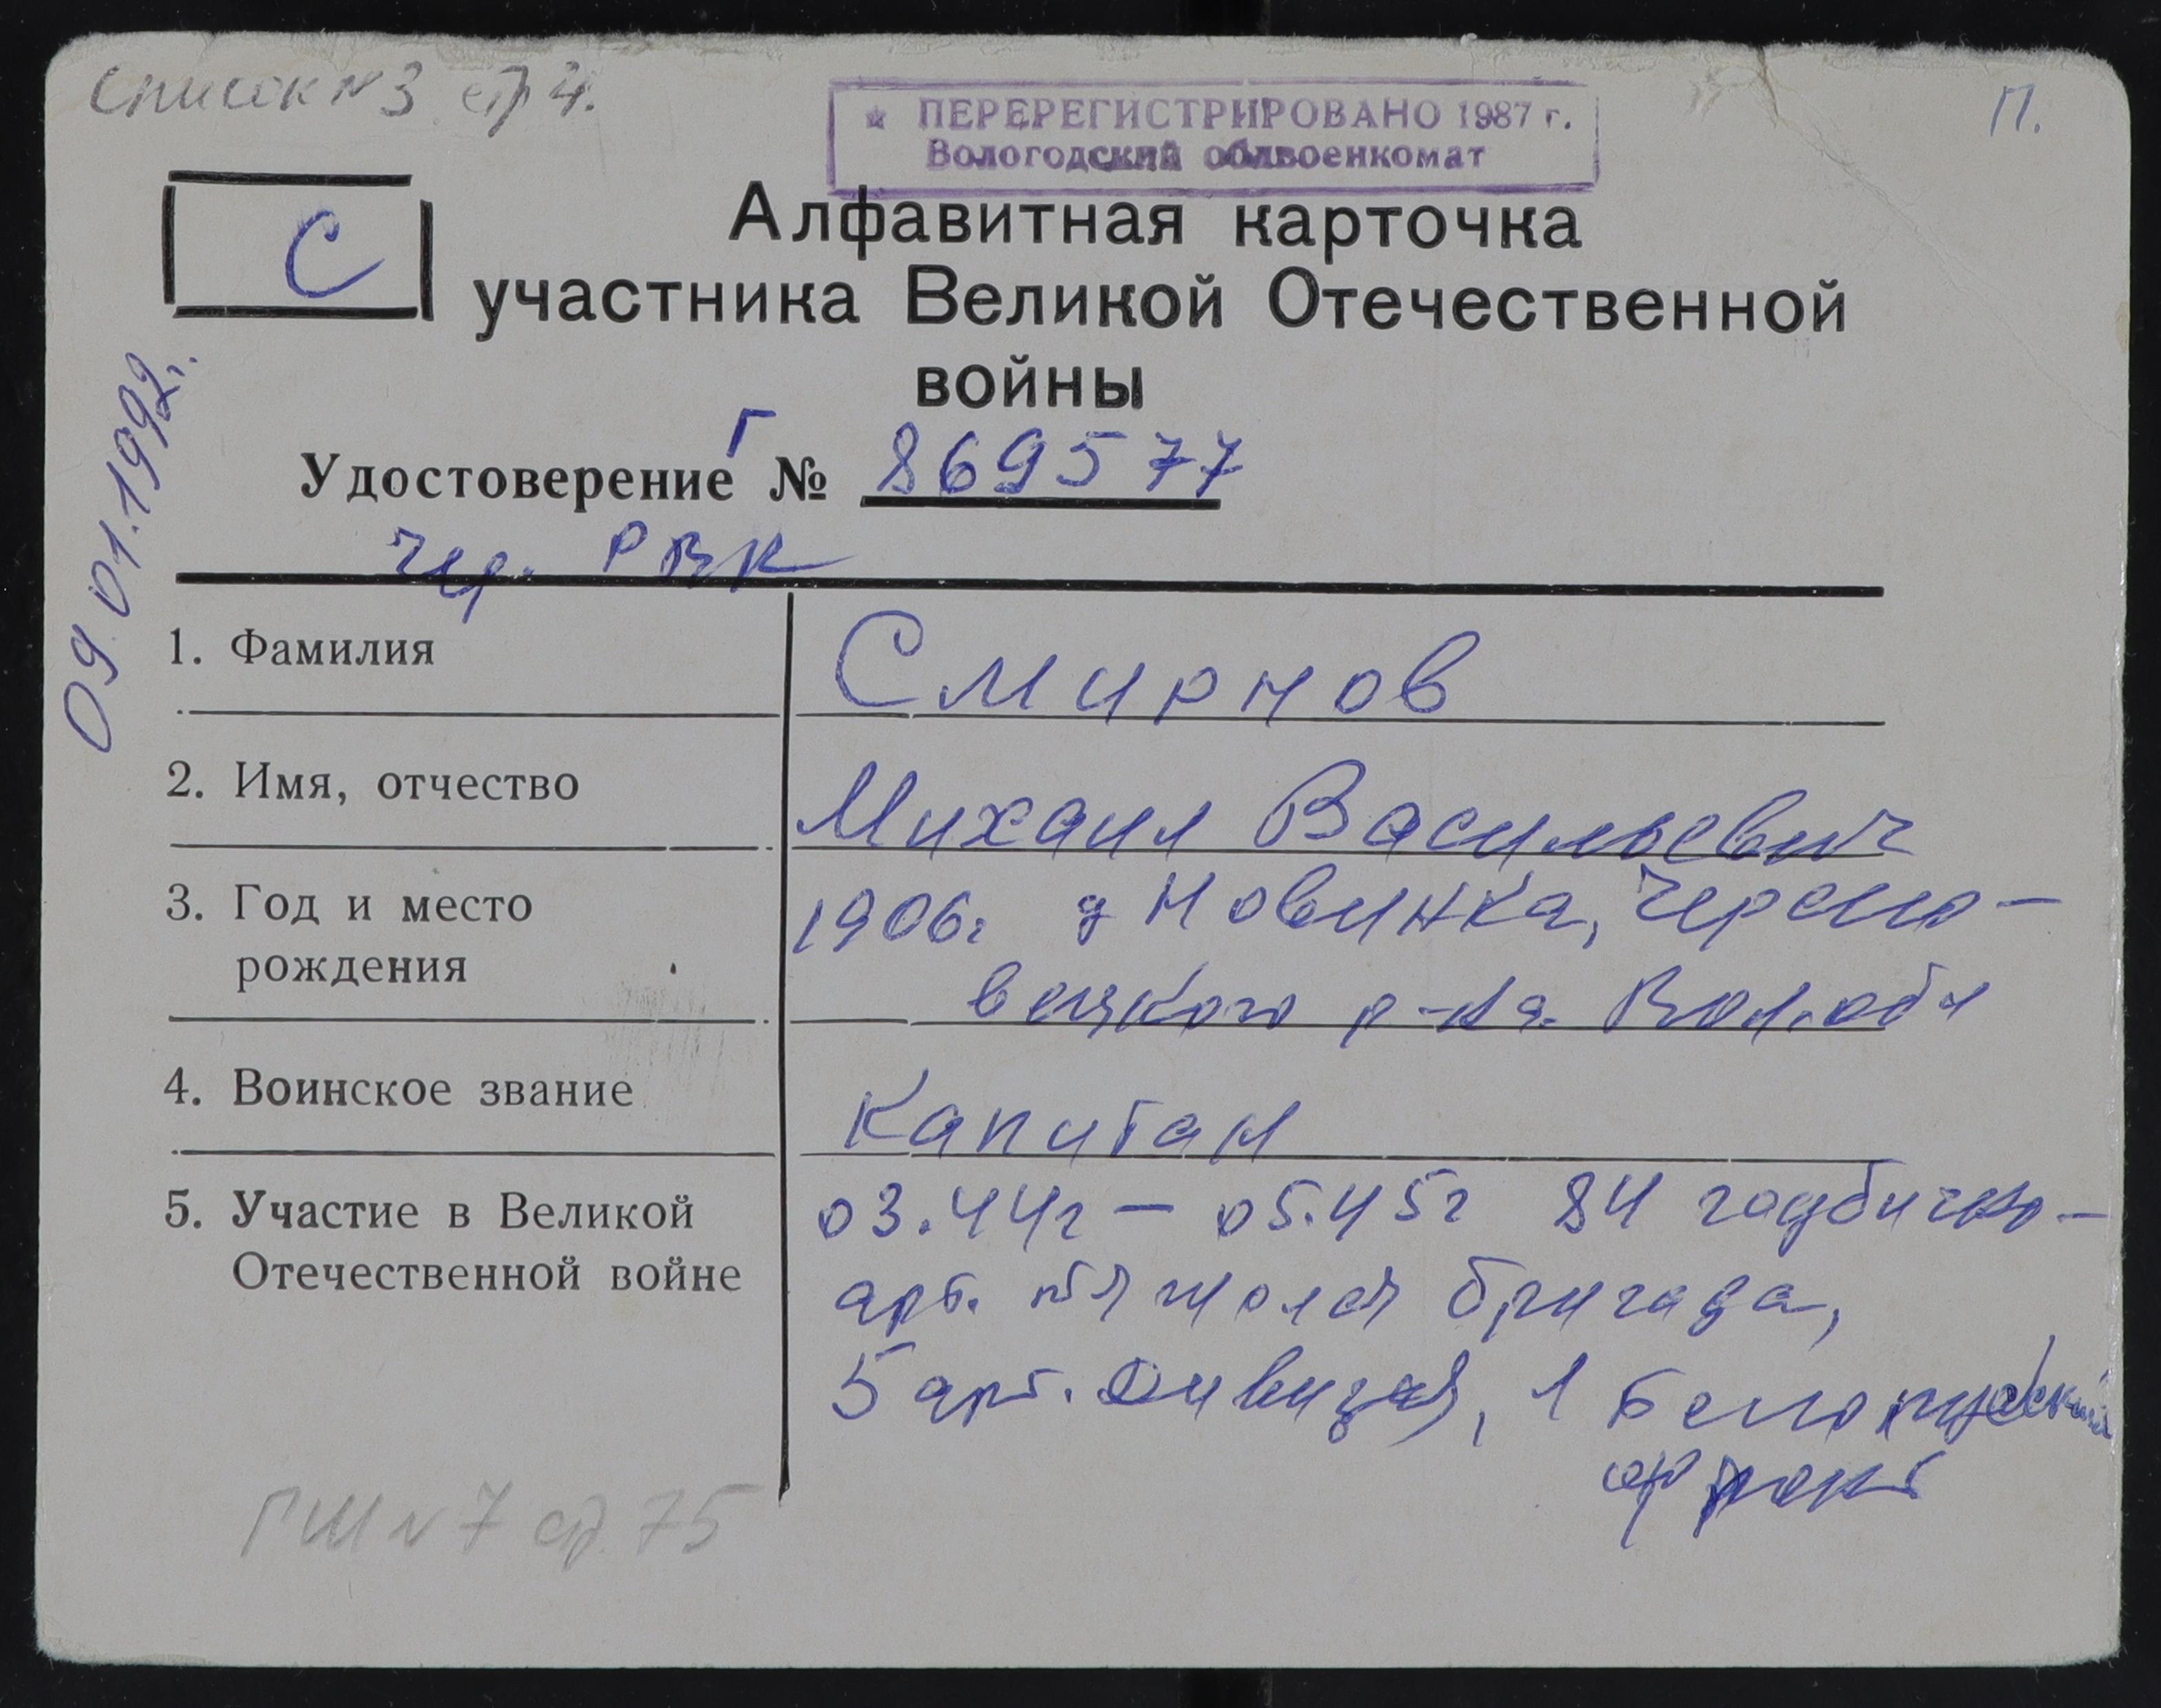 Список №3 стр 4.
★ ПЕРЕРЕГИСТРИРОВАНО 1987 г.
Вологодский облвоенкомат
П.
С
Алфавитная карточка
участника Великой Отечественной
войны
Удостоверение Г № 869577
чер. РВК
09.01.1992г.
1. Фамилия
Смирнов
2. Имя, отчество
Михаил Васильевич
3. Год и место
рождения
1906г д Новинка, Черепо-
вецкого р-на. Вол. обл
4. Воинское звание
Капитан
5. Участие в Великой
Отечественной войне
03.44г – 05.45г 84 гаубично-
арт. тяжолая бригада,
5 арт. дивизия, 1 Белорусский
фронт
ПШ №7 стр. 75